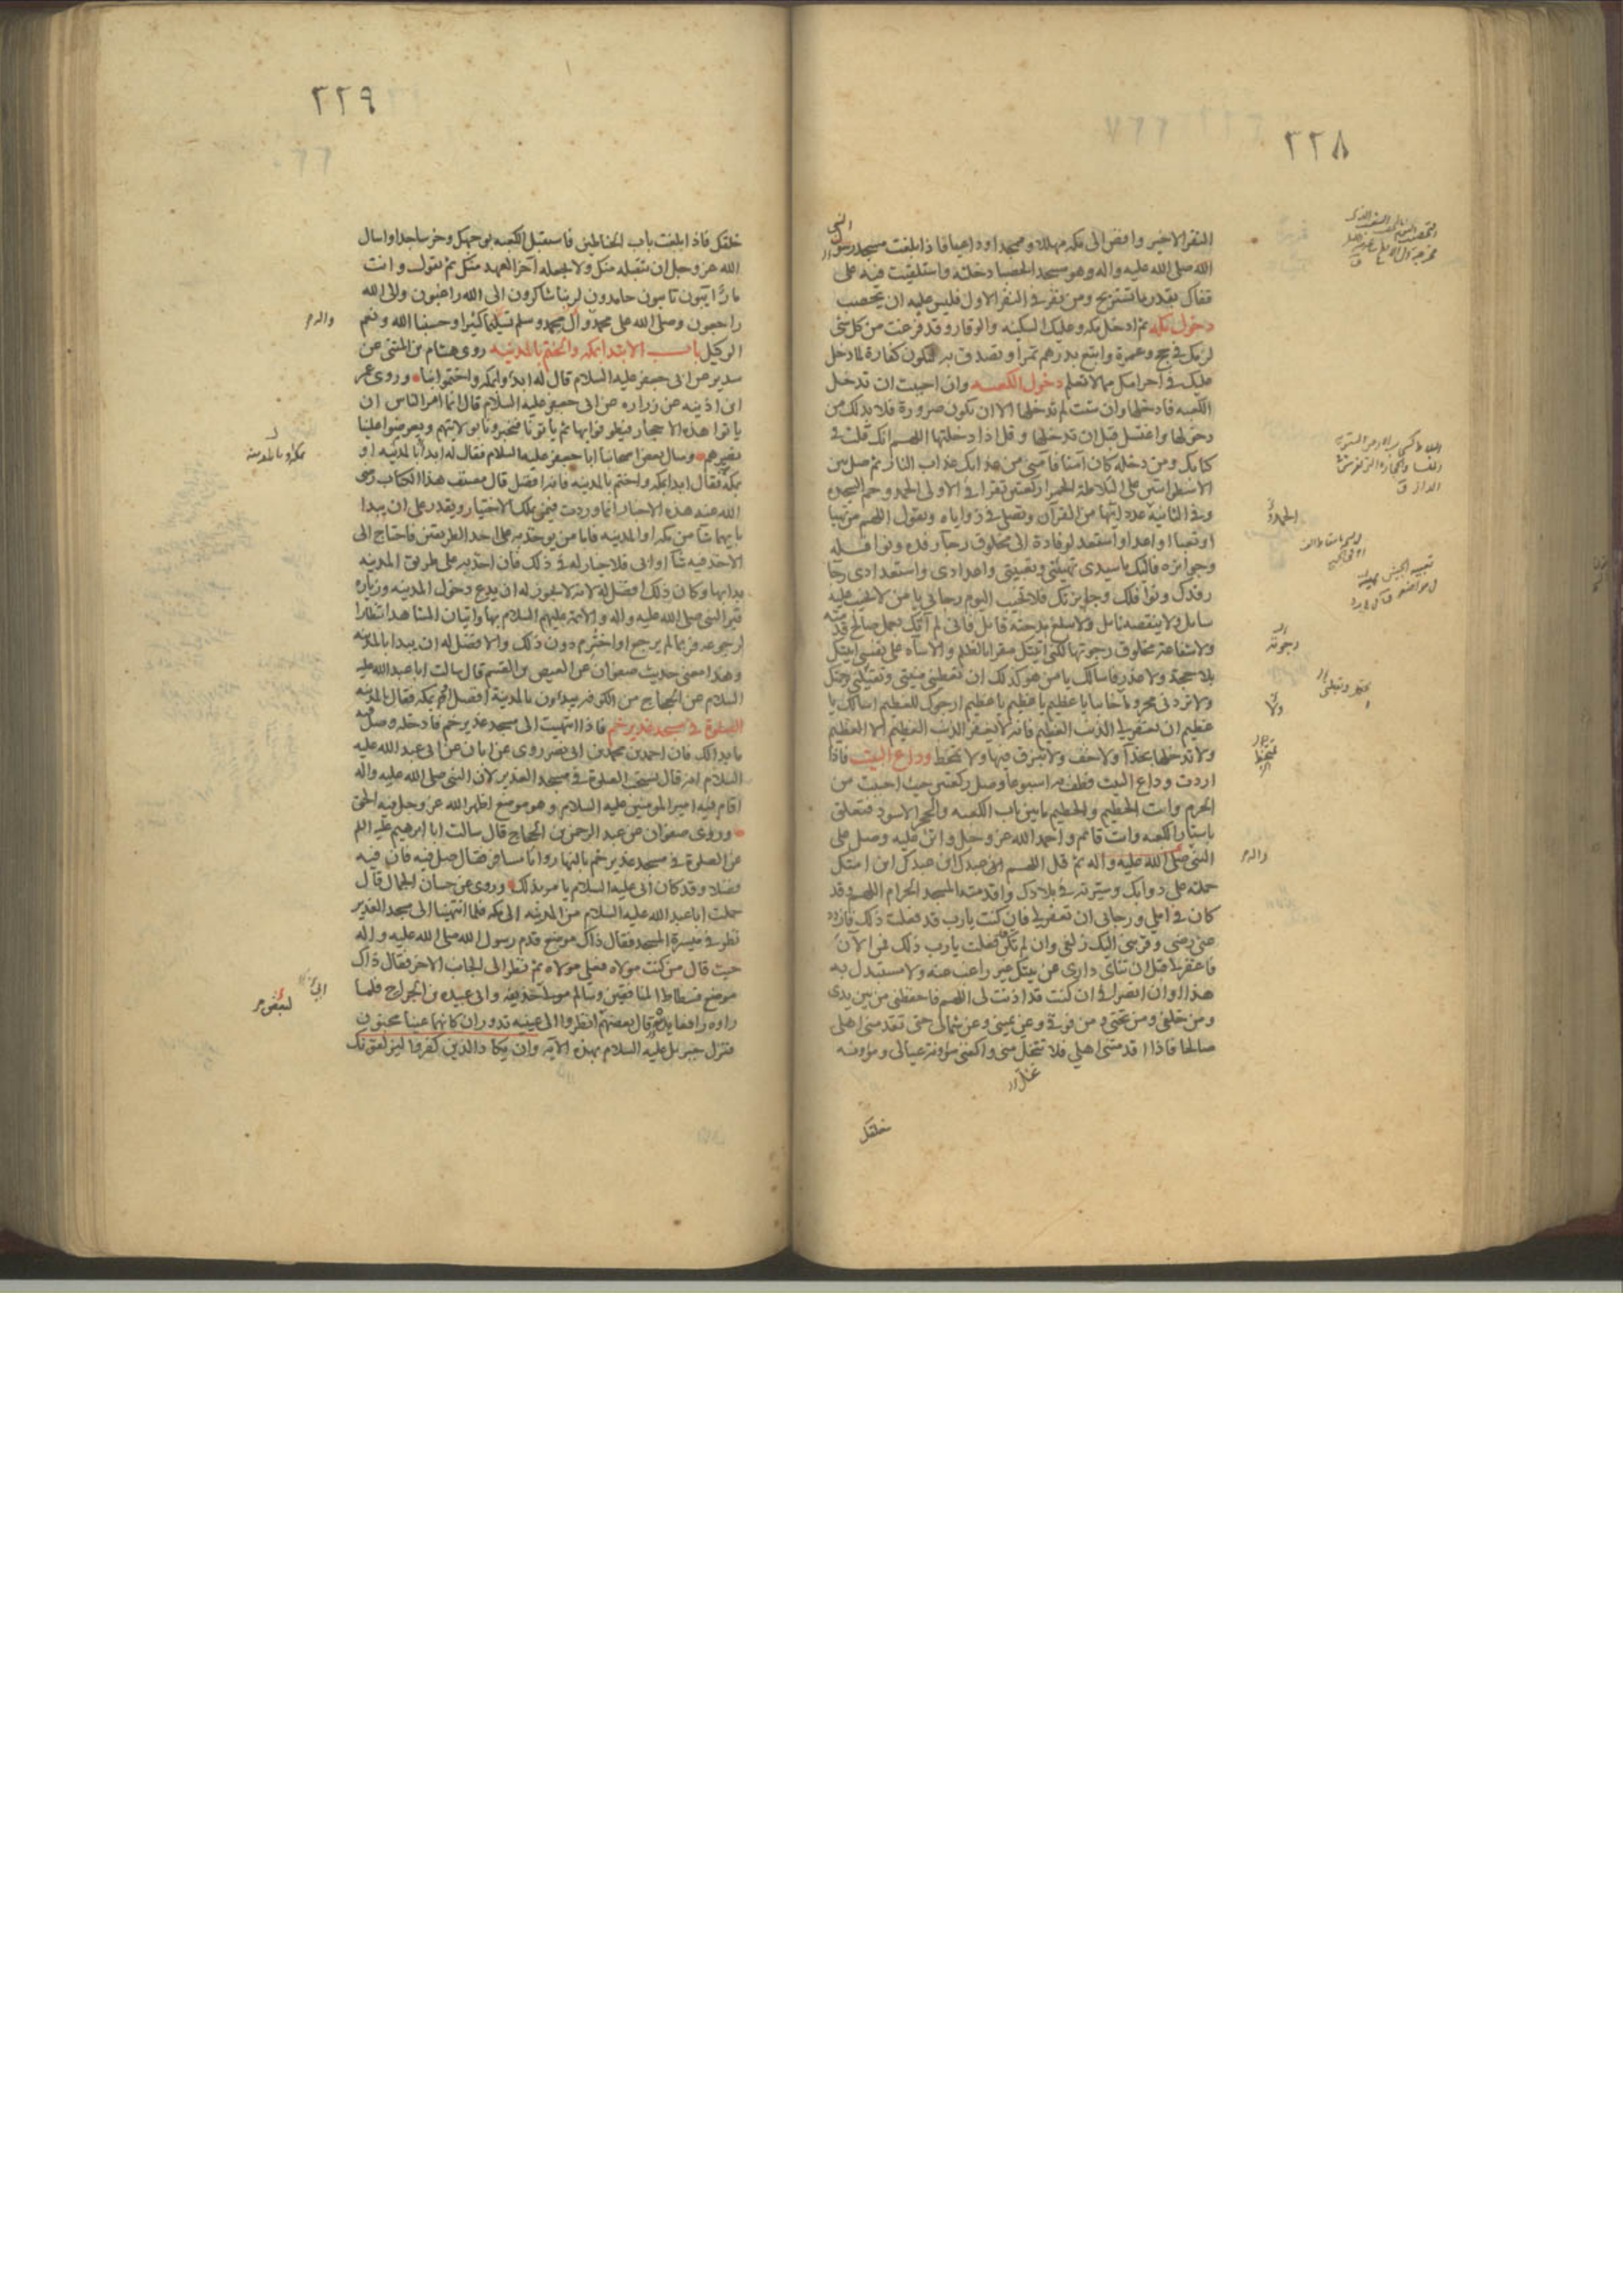 ٢٢٨
النفر الاخير وامض الى مكه مهللا وممجدا وداعيا فاذا بلغت مسجد رسول
النبى
الله صلى الله عليه واله وهو مسجد الحصبا دخلته واستلقيت فيه على
قفاك بقدر ما تستريح ومن نفر فى النفر الاول فليس عليه ان يحصب
دخول مكه ثم ادخل مكه وعليك السكينه والوقار وقد فرغت من كل شى
لزمك فى حج وعمرة وابتع بدرهم تمرا وتصدق به ليكون كفارة لما دخل
عليك فى احرامك مما لا تعلم دخول الكعبه وان احببت ان تدخل
الكعبه فادخلها وان شئت لم تدخلها الا ان تكون صرورة فلا بد لك من
دخولها واغتسل قبل ان تدخلها وقل اذا دخلتها اللهم انك قلت فى
كتابك ومن دخله كان آمنا فآمنى من عذابك عذاب النار ثم صل بين
الاسطوانتين على البلاطة الحمرا ركعتين تقرا فى الاولى الحمد وحم السجده
وفى الثانية عدد آيتها من القرآن وتصلى فى زواياه وتقول اللهم من تهيا
او تعبا او اعد او استعد لوفادة الى مخلوق رجآ رفده ونوافله
وجوائزه فاليك يا سيدى تهيئتى وتعبيتى واعدادى واستعدادى رجا
رفدك ونوافلك وجايزتك فلا تخيب اليوم رجائى يا من لا يخيب عليه
سايل ولا ينقصه نايل ولا يبلغ مدحته قايل فانى لم آتك بعمل صالح قدمته
ولا شفاعة مخلوق رجوتها لكنى اتيتك مقرا بالظلم والاساه على نفسى اتيتك
بلا حجة ولا عذر فاسالك يا من هو كذلك ان تعطينى منيتى وتقيلنى
ولا تردنى محروما خايبا يا عظيم يا عظيم يا عظيم ارجوك للعظيم اسالك يا
عظيم ان تغفر لى الذنب العظيم فانه لا يغفر الذنب العظيم الا العظيم
ولا تدخلها بحذآ ولا خف ولا تبزق فيها ولا تمخط وداع البيت فاذا
اردت وداع البيت فطف به اسبوعا وصل ركعتين حيث احببت من
الحرم وائت الحطيم والحطيم ما بين باب الكعبه والحجر الاسود فتعلق
باستار الكعبه وانت قائم واحمد الله عز وجل واثن عليه وصل على
النبى صلى الله عليه واله ثم قل اللهم انى عبدك ابن عبدك ابن امتك
حملته على دوابك وسيرته فى بلادك واقدمته المسجد الحرام اللهم وقد
كان فى املى ورجائى ان تغفر لى فان كنت يارب قد فعلت ذلك فازدد
عنى رضى وقربنى اليك زلفى وان لم تكن فعلت يارب ذلك فمن الان
فاغفر لى قبل ان تنآى دارى عن بيتك غير راغب عنه ولا مستبدل به
هذا اوان انصرافى ان كنت قد اذنت لى اللهم فاحفظنى من بين يدى
ومن خلفى ومن تحتى ومن فوقى وعن يمينى وعن شمالى حتى تقدمنى اهلى
صالحا فاذا اقدمتنى اهلى فلا تتخل منى واكفنى مؤونة عيالى ومؤونه
خلقك
والدم
٢٢٩
خلقك فاذا بلغت باب الحناطين فاستقبل الكعبه بوجهك وخر ساجدا واسال
الله عز وجل ان يتقبله منك ولا يجعله آخر العهد منك ثم تقول وانت
مارّ آيبون تايبون حامدون لربنا شاكرون الى الله راغبون والى الله
راجعون وصلى الله على محمد وآل محمد وسلم تسليما كثيرا وحسبنا الله ونعم
الوكيل باب الابتدا بمكه والختم بالمدينه روى هشام بن المثنى عن
سدير عن ابى جعفر عليه السلام قال له ابداوا بمكه واختموا بنا وروى عمر
ابن اذينه عن زراره عن ابى جعفر عليه السلام قال انما امر الناس ان
ياتوا هذه الاحجار فيطوفوا بها ثم ياتونا فيخبرونا بولايتهم ويعرضوا علينا
نصرهم وسال بعض اصحابنا ابا جعفر عليه السلام فقال له ابدا بالمدينه او
بمكه فقال ابدا بمكه واختم بالمدينه فانه افضل قال مصنف هذا الكتاب رضى
الله عنه هذه الاخبار انما وردت فيمن يملك الاختيار ويقدر على ان يبدا
بايهما شا من مكه او المدينه فاما من يوخذ به على احد الطريقين فاحتاج الى
الاخذ فيه شآ او ابى فلا خيار له فى ذلك فان اخذ به على طريق المدينه
بدا بها وكان ذلك افضل له لانه لا يجوز له ان يدع دخول المدينه وزياره
قبر النبى صلى الله عليه واله والائمة عليهم السلام بها واتيان المشاهد انتظارا
لرجوعه فربما لم يرجع او اخترم دون ذلك والافضل له ان يبدا بالمدينه
وهذا معنى حديث صفوان عن العيص بن القسم قال سالت ابا عبد الله عليه
السلام عن الحجاج من الكوفه يبداون بالمدينة افضل ام بمكه فقال بالمدينه
الصلوة فى مسجد غدير خم فاذا انتهيت الى مسجد غدير خم فادخله وصل فيه
ما بدا لك فان احمد بن محمد بن ابى نصر روى عن ابان عن ابى عبد الله عليه
السلام انه قال تستحب الصلوة فى مسجد الغدير لان النبى صلى الله عليه واله
اقام فيه امير المومنين عليه السلام وهو موضع اظهر الله عز وجل فيه الحق
وروى صفوان عن عبد الرحمن بن الحجاج قال سالت ابا ابرهيم عليه السلام
عن الصلوة فى مسجد غدير خم بالنهار وانا مسافر فقال صل فيه فان فيه
فضلا وقد كان ابى عليه السلام يامر بذلك وروى عن حسان الجمال قال
حملت ابا عبد الله عليه السلام من المدينه الى مكه فلما انتهينا الى مسجد الغدير
نظر فى ميسرة المسجد فقال ذاك موضع قدم رسول الله صلى الله عليه واله
حيث قال من كنت مولاه فعلى مولاه ثم نظر الى الجانب الاخر فقال ذاك
موضع فسطاط المنافقين وسالم مولى حذيفه وابى عبيده بن الجراح فلما
راوه رافعا يده قال بعضهم انظروا الى عينيه تدوران كانهما عينا مجنون
فنزل جبريل عليه السلام بهذه الآية وان يكاد الذين كفروا ليزلقونك
والدم
بمكه و بالمدينة